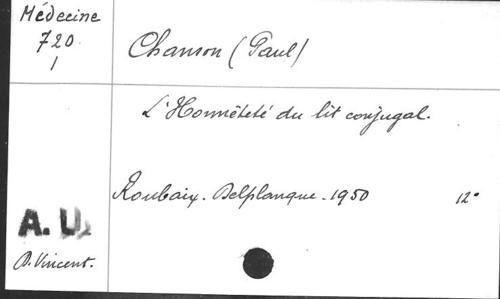 Médecine
720
1
Chanson (Paul)
L'Honnêteté du lit conjugal.
Roubaix. Delplanque. 1950 12°
A. U.
D. Vincent.